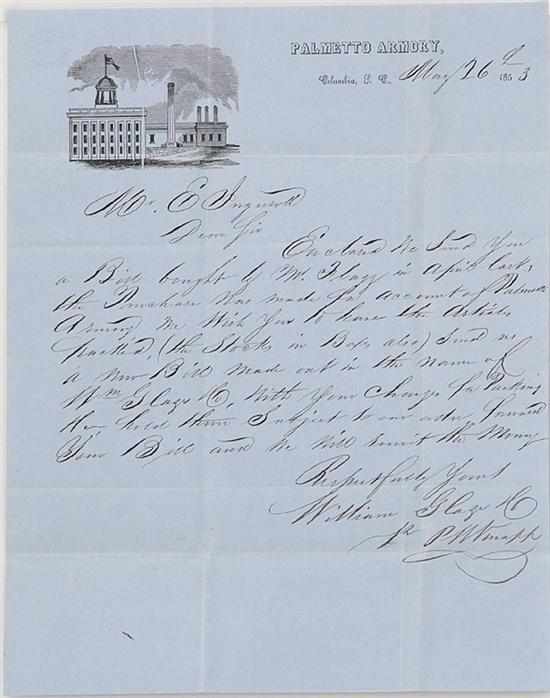 PALMETTO ARMORY,
Columbia, S. C. May 26th 1853
Mr. E Ingersoll
Dear Sir
Enclosed We Send You
a Bill bought of Mr. Flagg in April last,
the Purchase Was made for account of Palmetto
Armory We Wish You to have the Articles
Packed, (the Stocks in Box also) Send us
a New Bill made out in the name of
Wm Glaze & Co With Your Charges for Packing
hold them Subject to our order, forward
Your Bill and We Will remit the Money
Respectfully Yours
William Glaze & Co